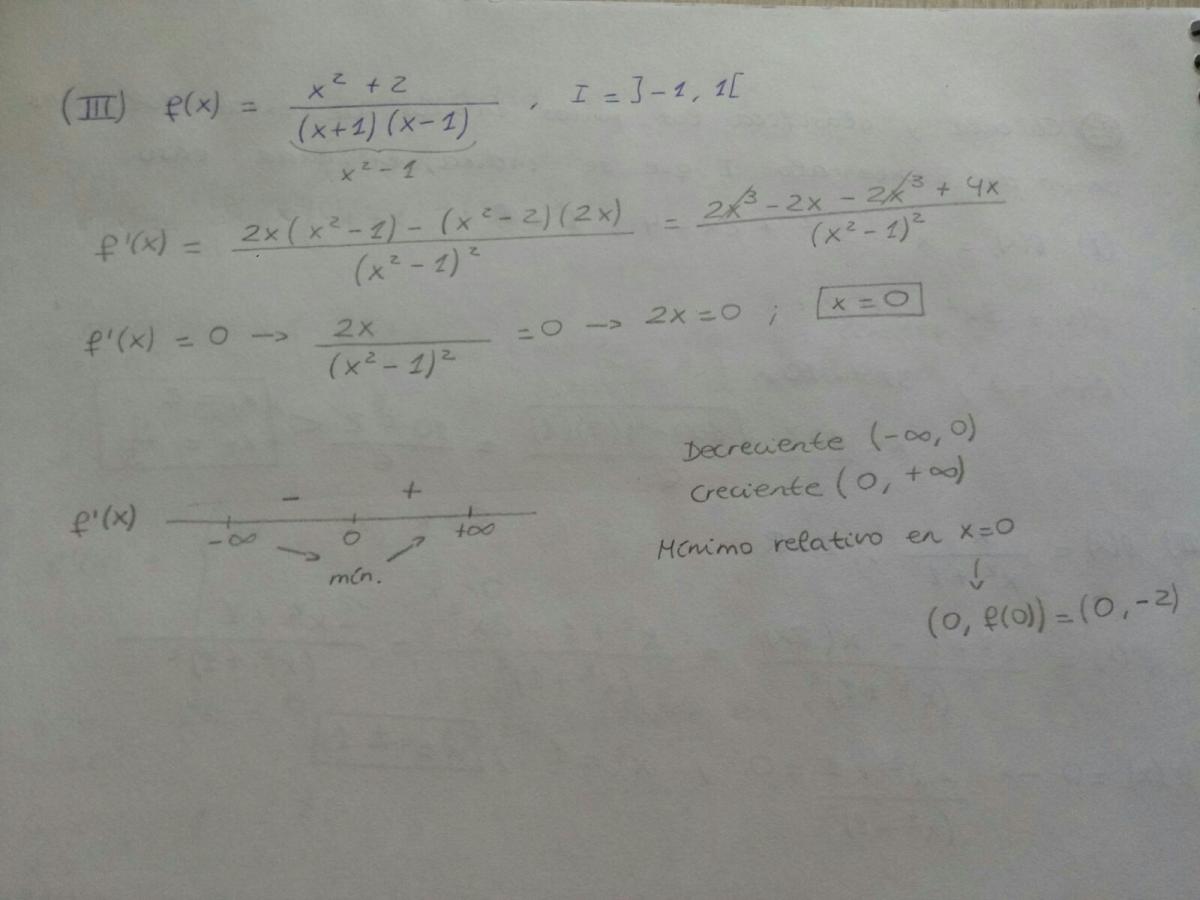 (III) f(x) = (x² + 2) / ((x+1)(x-1)) , I = ]-1, 1[
x² - 1
f'(x) = (2x(x² - 1) - (x² - 2)(2x)) / (x² - 1)² = (2x³ - 2x - 2x³ + 4x) / (x² - 1)²
f'(x) = 0 → 2x / (x² - 1)² = 0 → 2x = 0 ; x = 0
Decreciente (-∞, 0)
Creciente (0, +∞)
f'(x) - +
-∞ 0 +∞
mín.
Mínimo relativo en x=0
↓
(0, f(0)) = (0, -2)